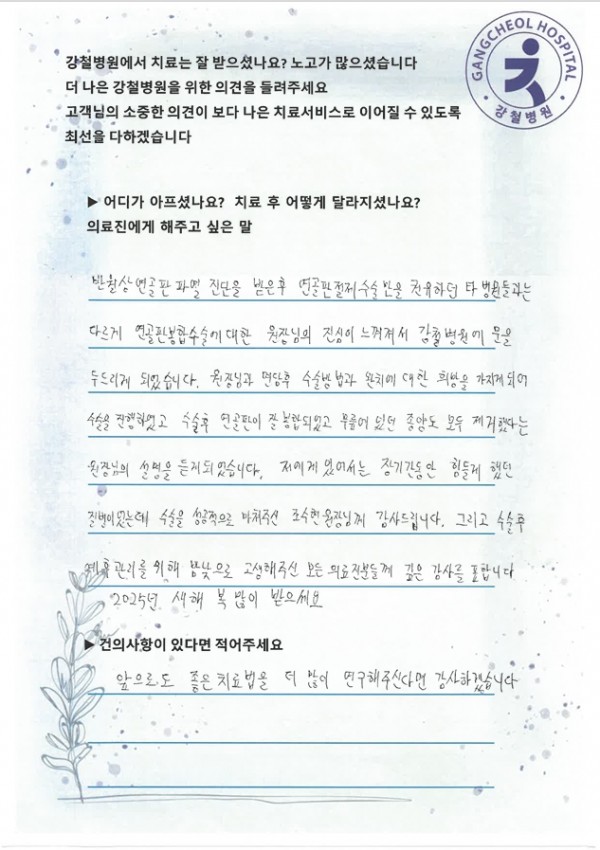 강철병원에서 치료는 잘 받으셨나요? 노고가 많으셨습니다
더 나은 강철병원을 위한 의견을 들려주세요
고객님의 소중한 의견이 보다 나은 치료서비스로 이어질 수 있도록
최선을 다하겠습니다
GANGCHEOL HOSPITAL
· 강철병원 ·
▶ 어디가 아프셨나요? 치료 후 어떻게 달라지셨나요?
의료진에게 해주고 싶은 말
반월상연골판 파열 진단을 받은후 연골판절제수술만을 권유하던 타 병원들과는
다르게 연골판봉합수술에대한 원장님의 진심이 느껴져서 강철병원에 문을
두드리게 되었습니다. 원장님과 면담후 수술방법과 완치에 대한 희망을 가지게되어
수술을 진행하였고 수술후 연골판이 잘 봉합되었고 무릎에 있던 종양도 모두 제거했다는
원장님의 설명을 듣게되었습니다. 저에게 있어서는 장기간동안 힘들게 했던
질병이었는데 수술을 성공적으로 마쳐주신 조수현원장님께 감사드립니다. 그리고 수술후
예후관리를 위해 밤낮으로 고생해주신 모든 의료진분들께 깊은 감사를 표합니다
2025년 새해 복 많이 받으세요
▶ 건의사항이 있다면 적어주세요
앞으로도 좋은치료법을 더 많이 연구해주신다면 감사하겠습니다